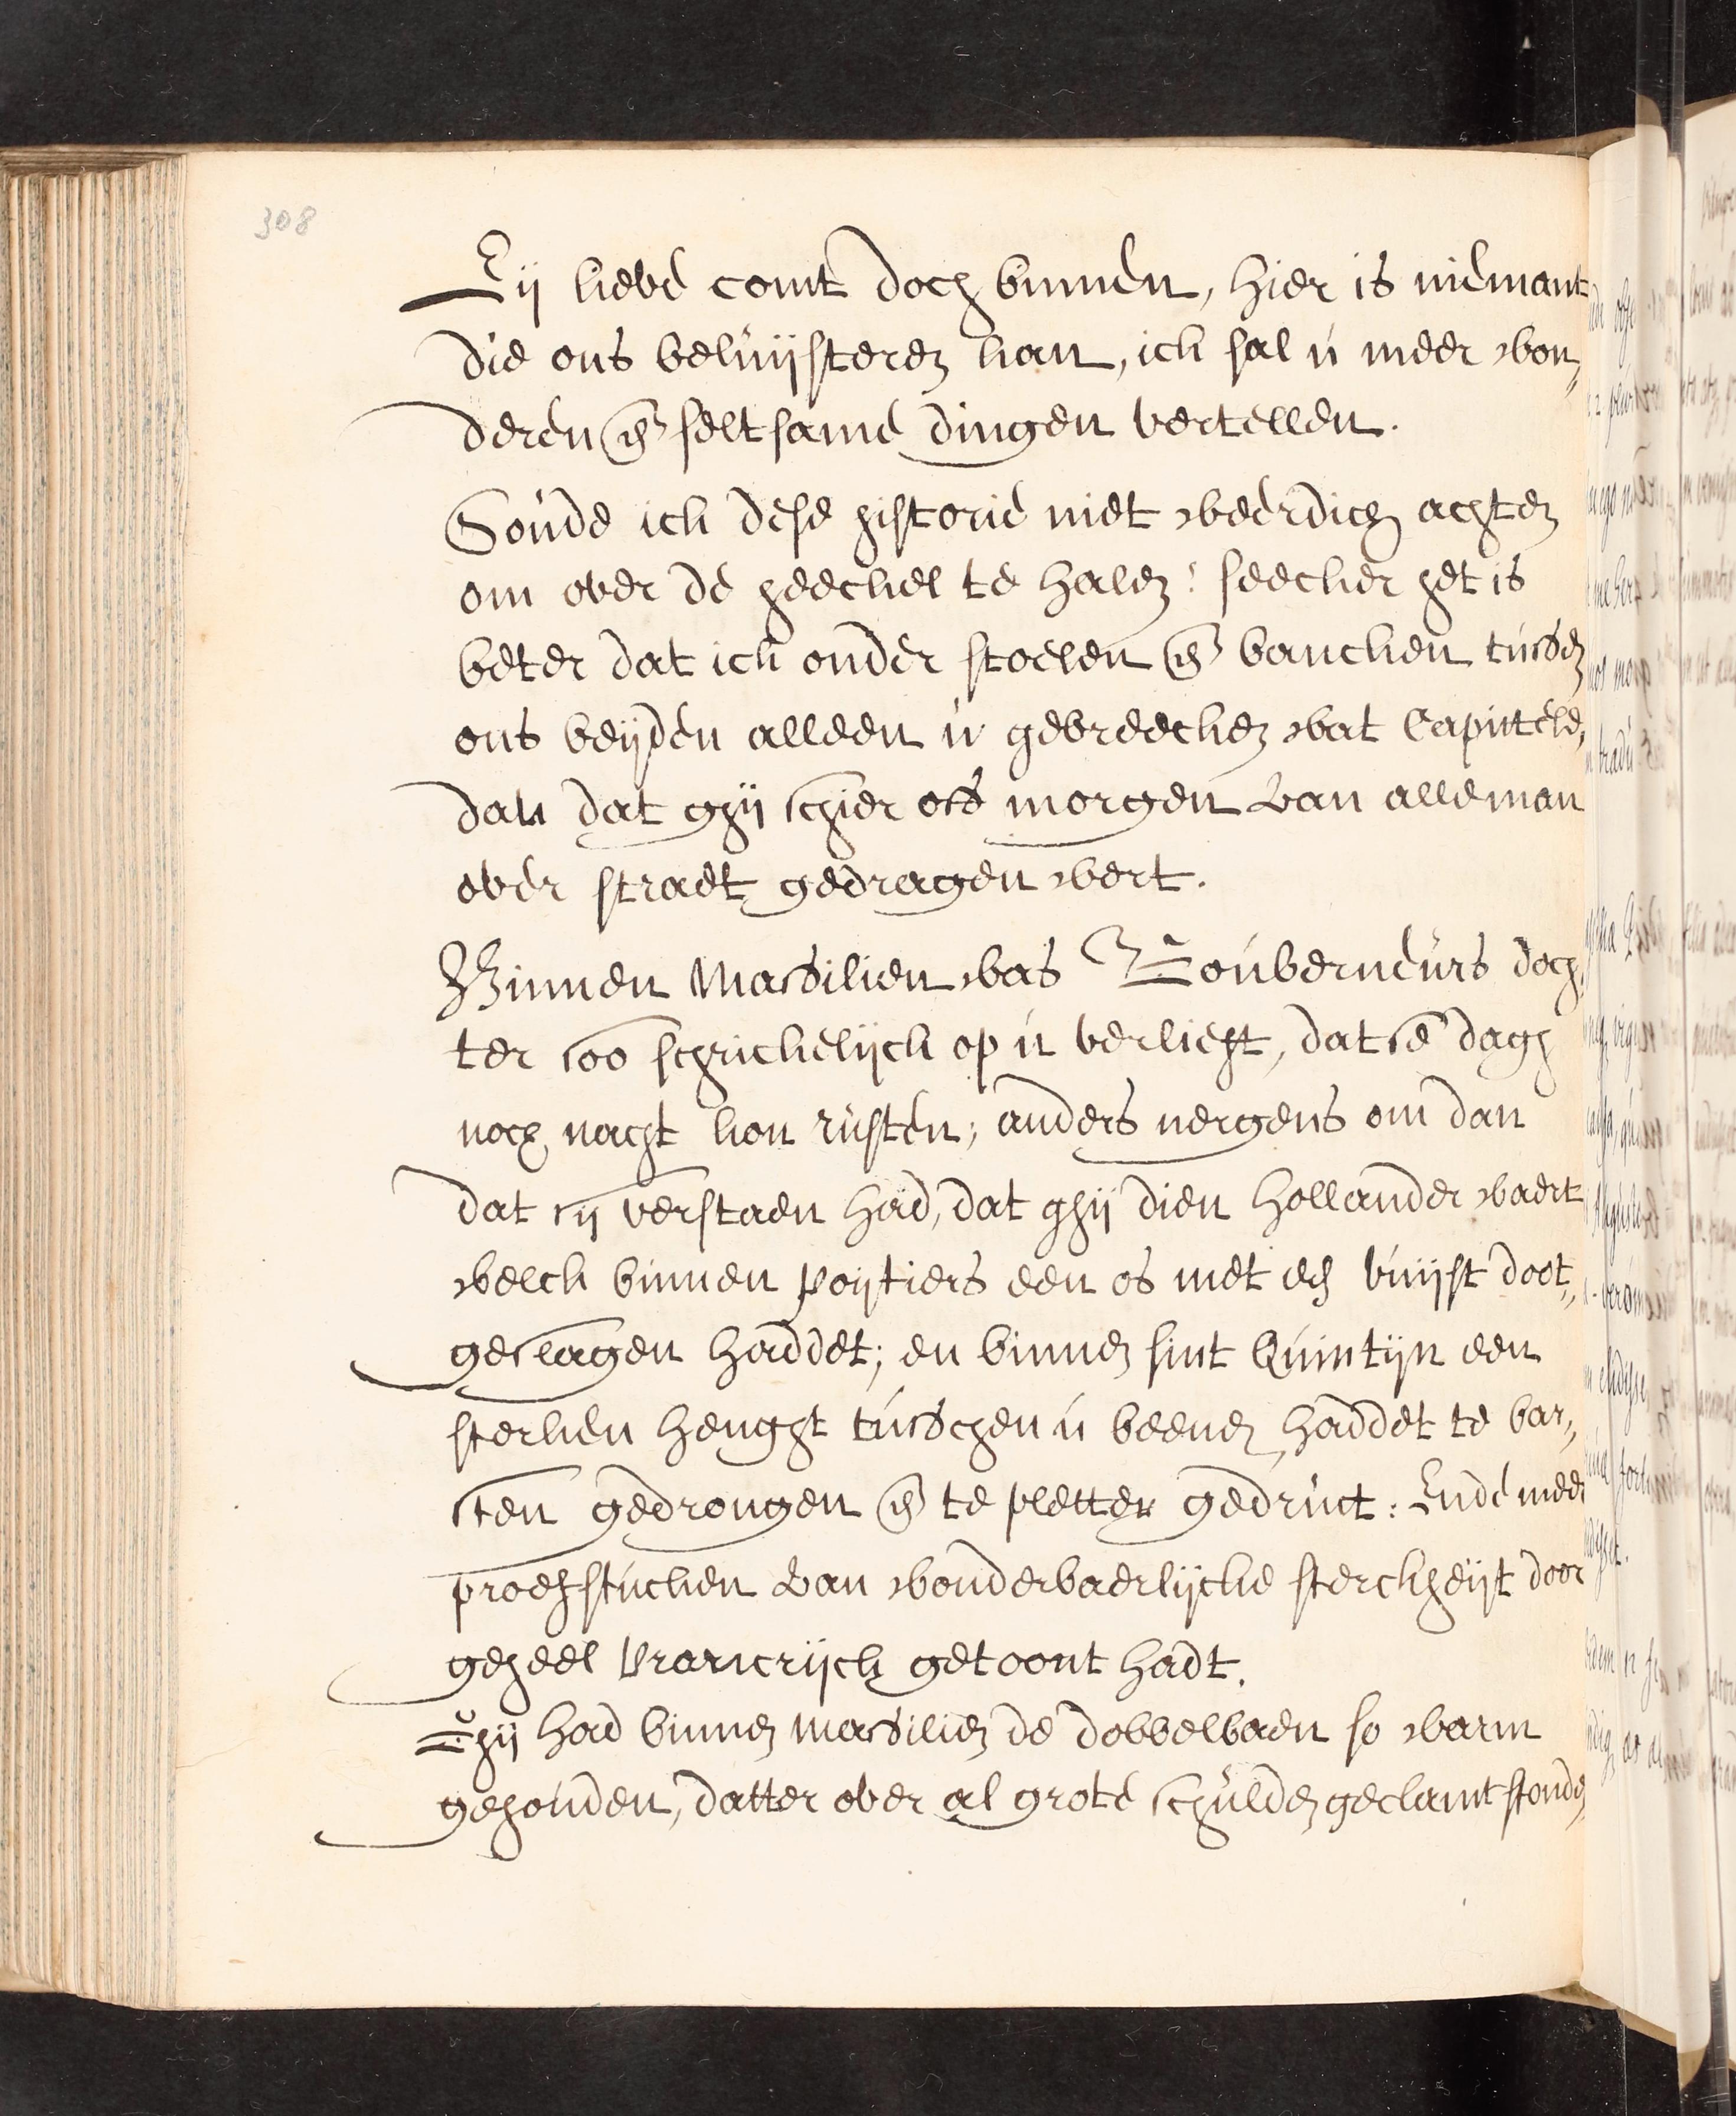 308
Eij lieve comt doch binnen, hier is niemant
die ons beluijsteren kan, ick sal u meer won„
deren en seltsame dingen vertellen.
Soude ick dese historie niet weerdich achten
om over de heeckel te halen? seecker het is
beter dat ick onder stoelen en bancken tussen
ons beijden alleen u gebreecken wat Capittele,
dan dat ghij schier oft morgen van alleman
over straet gedragen wert.
Binnen Marsilien was Gouverneurs doch„
ter soo schrickelijck op u verlieft, dat se dagh
noch nacht kon rusten; anders nergens om dan
dat sij verstaen had, dat ghij dien Hollander waert
welck binnen Poijtiers een os met een vuijst doot„
geslagen haddet; en binnen sint Quintijn een
sterken hengst tusschen u beenen haddet te bar„
sten gedrongen en te pletter gedruct: Ende meer
proefstucken van wonderbaerlijcke sterckheijt door
geheel Vrancrijck getoont hadt.
Ghij had binnen marsilien de dobbelbaen so warm
gehouden, datter over al grote schulden geclamt stonden,